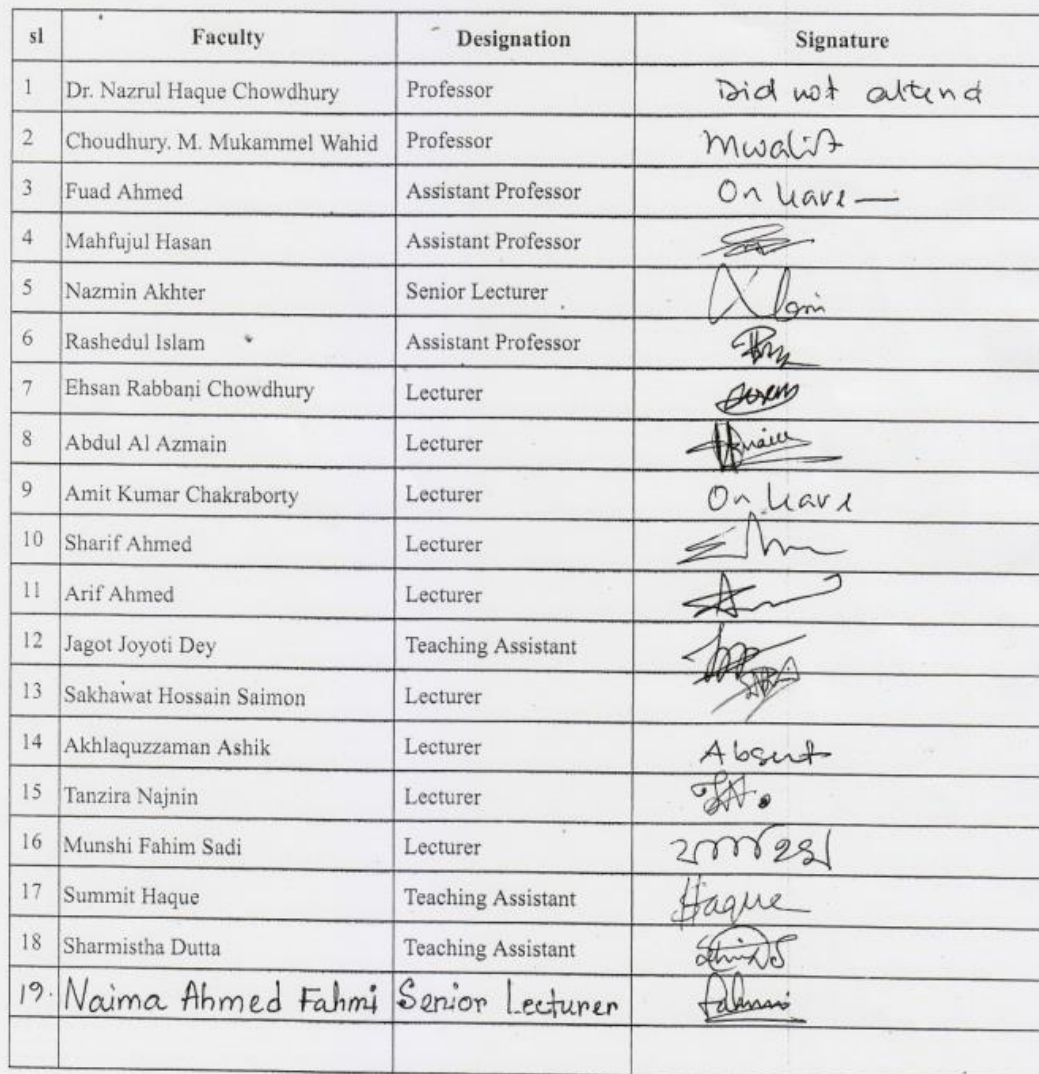 sl Faculty Designation Signature
1 Dr. Nazrul Haque Chowdhury Professor Did not attend
2 Choudhury. M. Mukammel Wahid Professor
3 Fuad Ahmed Assistant Professor On leave
4 Mahfujul Hasan Assistant Professor
5 Nazmin Akhter Senior Lecturer
6 Rashedul Islam Assistant Professor
7 Ehsan Rabbani Chowdhury Lecturer
8 Abdul Al Azmain Lecturer
9 Amit Kumar Chakraborty Lecturer On leave
10 Sharif Ahmed Lecturer
11 Arif Ahmed Lecturer
12 Jagot Joyoti Dey Teaching Assistant
13 Sakhawat Hossain Saimon Lecturer
14 Akhlaquzzaman Ashik Lecturer Absent
15 Tanzira Najnin Lecturer
16 Munshi Fahim Sadi Lecturer
17 Summit Haque Teaching Assistant Haque
18 Sharmistha Dutta Teaching Assistant
19. Naima Ahmed Fahmi Senior Lecturer Fahmi